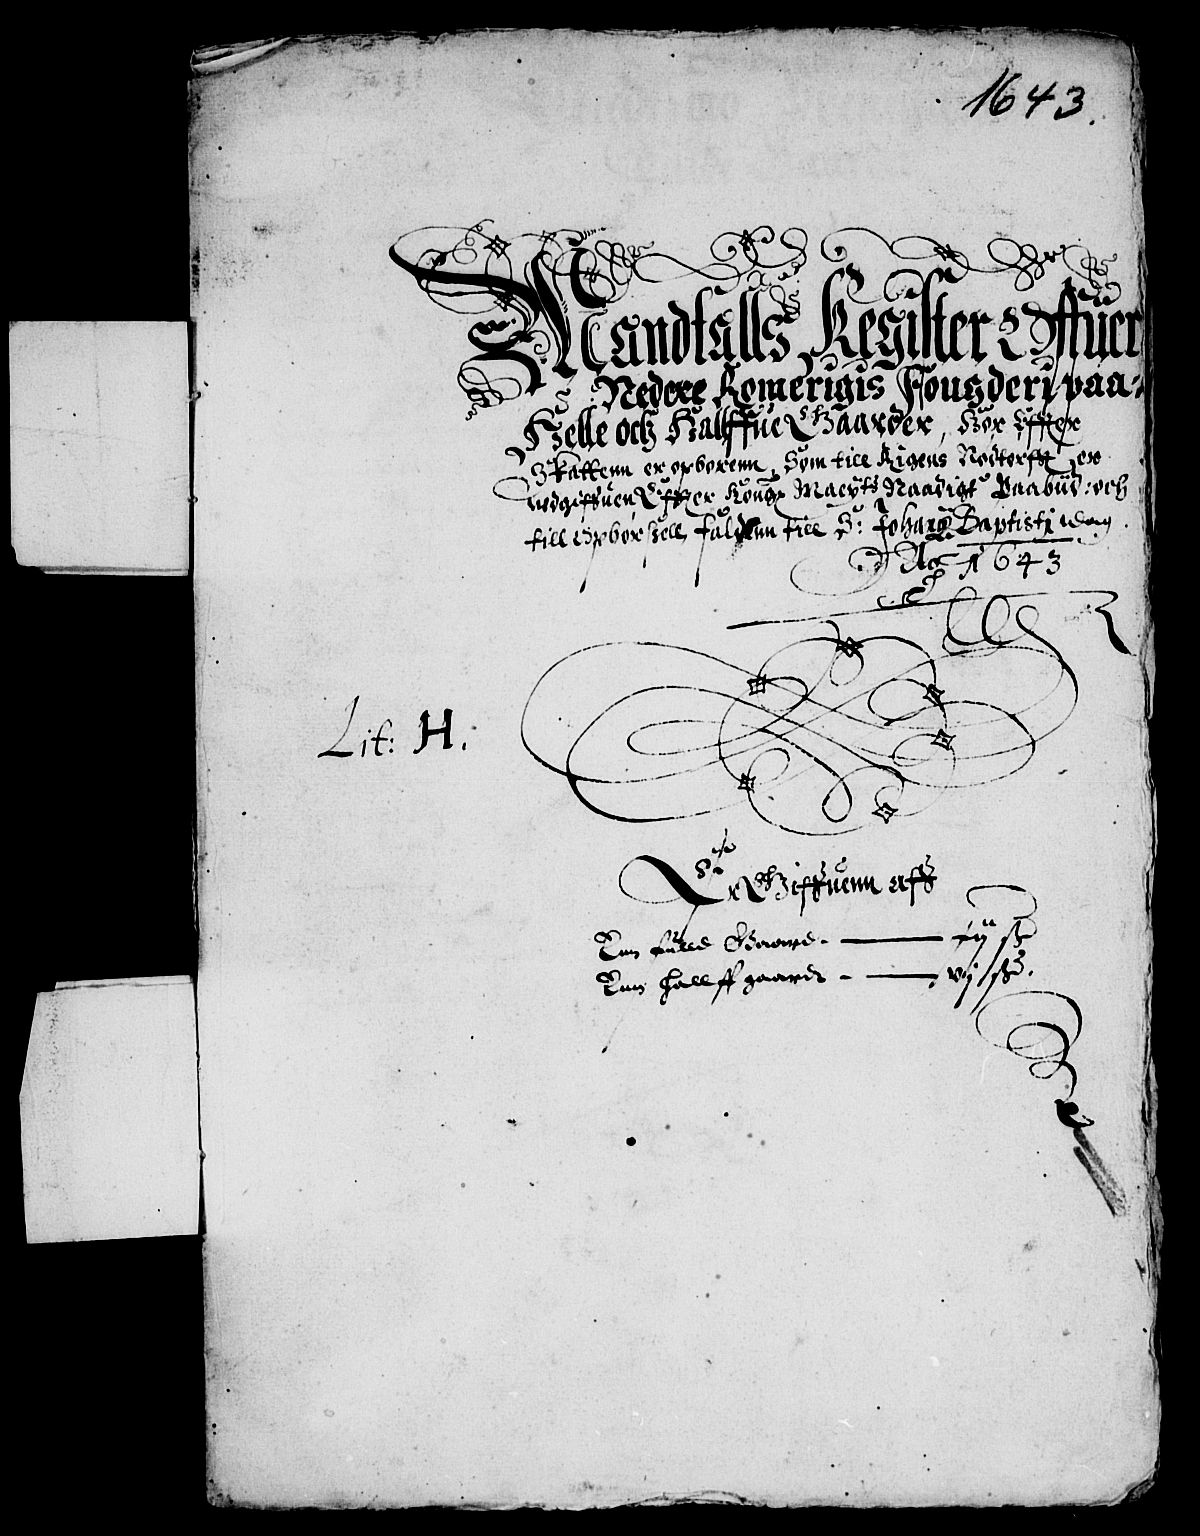 1643.
Mandtalls Register Offuer
Nedere Romerigis Fougderj paa
Helle och Halffue Gaarder, Hor Effter
Skattenn er opborenn, Som till Rigens Nødtørfft er
udgiffuen Effter Kong: Mayts Naadigt Paabud: och
till Opbørsell, faldenn till S: Johanj Baptistj dag.
Ao 1643
Lit: H.
Er Giffuenn aff
Enn fuld Gaard — ij
Enn halff gaard — vj